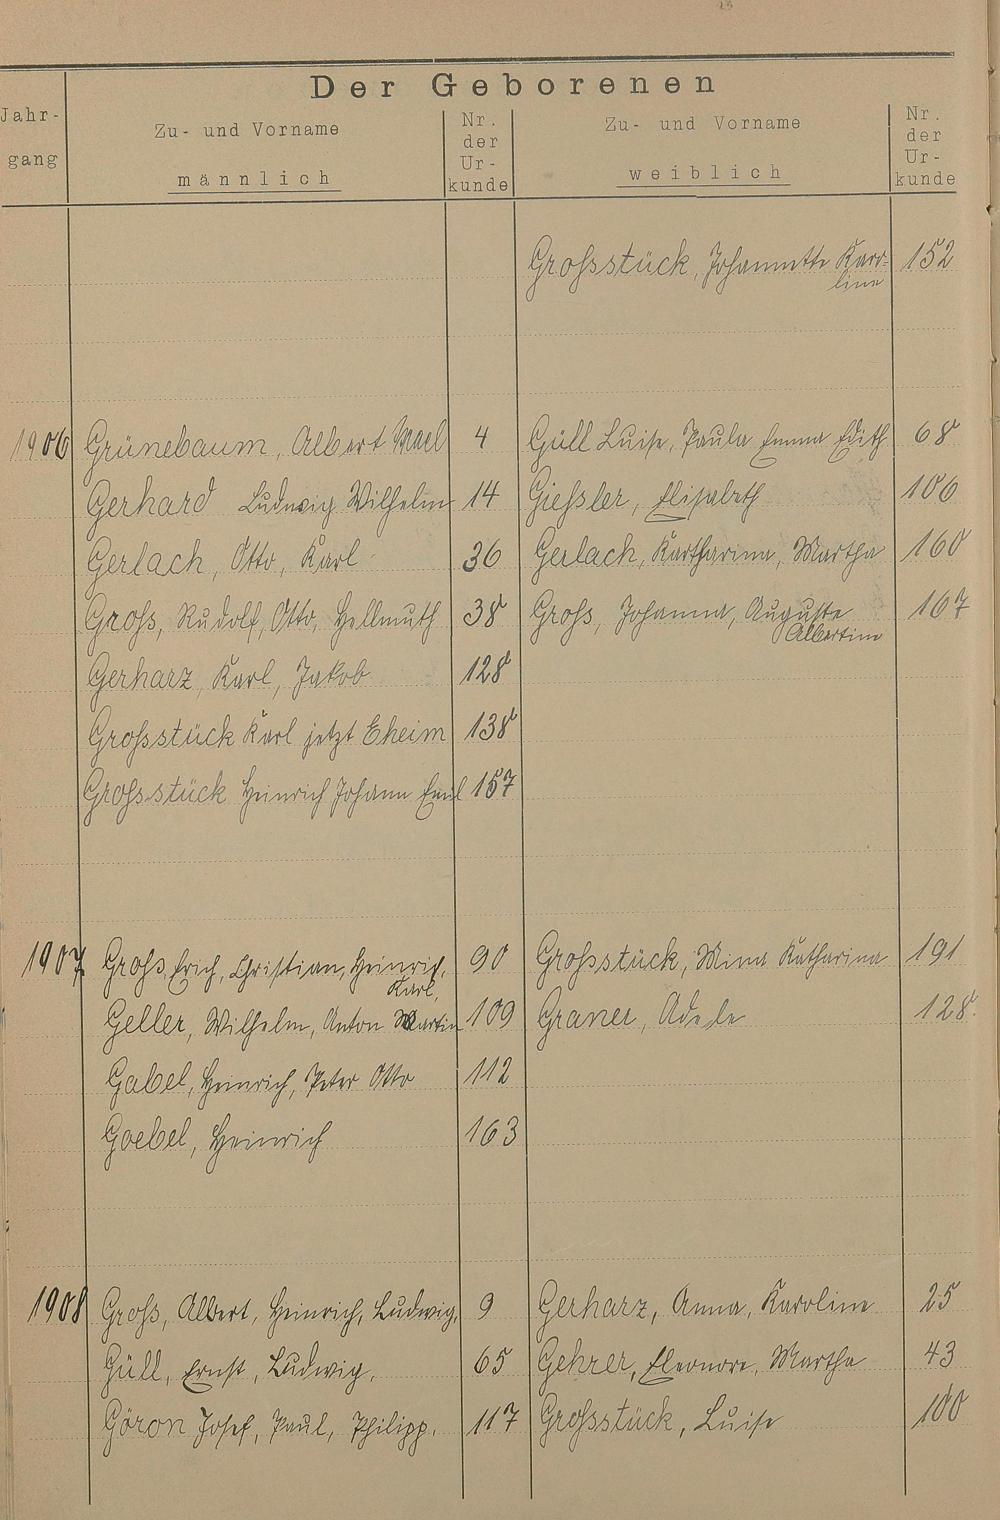 Der Geborenen
Jahr-
gang
Zu- und Vorname
männlich
Nr.
der
Ur-
kunde
Zu- und Vorname
weiblich
Nr.
der
Ur-
kunde
Großstück, Johannette Karo- 152
line
1906 Grünebaum, Albert 4 Güll Luise, Paula Emma Edith 68
Gerhard Ludwig Wilhelm 14 Gießler, Elisabeth 106
Gerlach, Otto, Karl 36 Gerlach, Kartharina, Martha 160
Groß, Rudolf, Otto, Hellmuth 38 Groß, Johanna, Auguste 167
Albertine
Gerharz, Karl, Jakob 128
Großstück Karl jetzt Eheim 138
Großstück Heinrich Johann Emil 157
1907 Groß, Erich, Christian, Heinrich, 90 Großstück, Mina Katharina 191
Karl,
Geller, Wilhelm, Anton Martin 109 Graner, Adele 128.
Gabel, Heinrich, Peter Otto 112
Goebel, Heinrich 163
1908 Groß, Albert, Heinrich, Ludwig, 9 Gerharz, Anna, Karoline 25
Güll, Ernst, Ludwig, 65 Gehrer, Eleonore, Martha 43
Göron Josef, Paul, Philipp. 117 Großstück, Luise 100